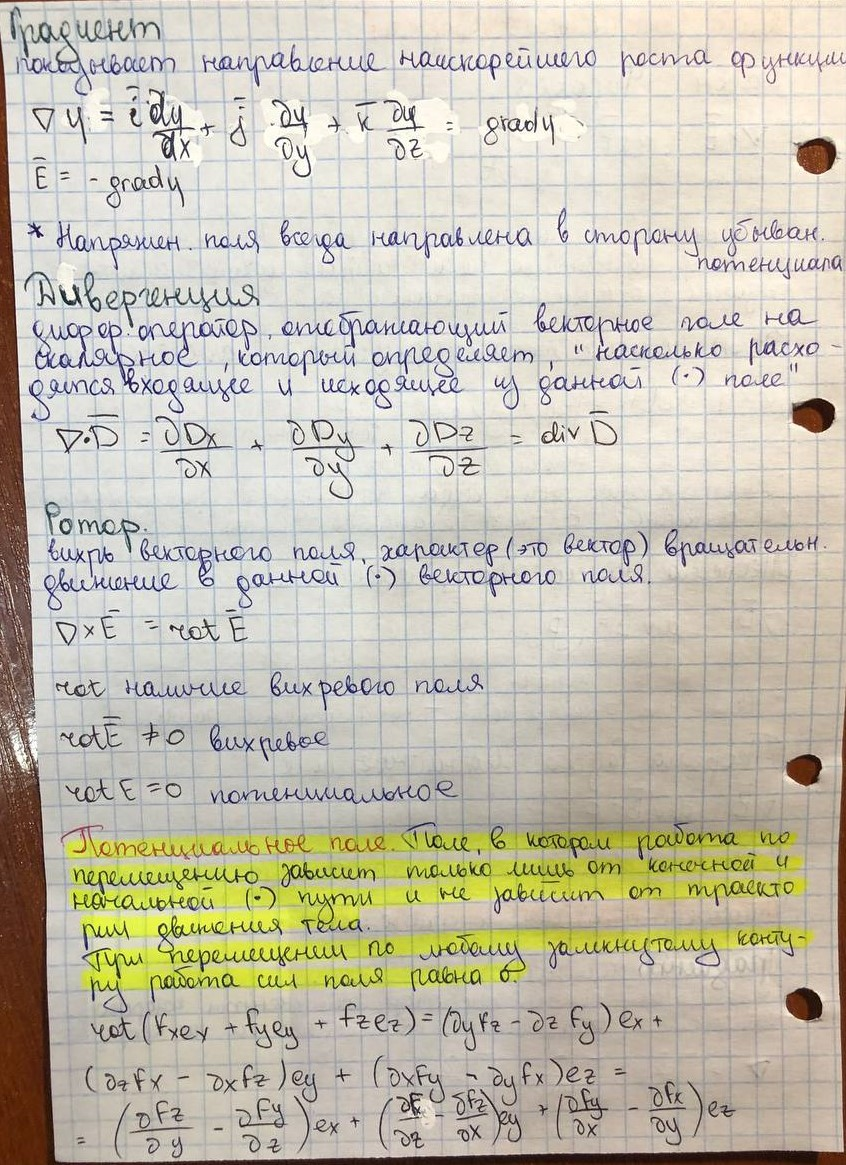 Градиент
показывает направление наискорейшего роста функции
∇φ = i̅ ∂φ/∂x + j̅ ∂φ/∂y + k̅ ∂φ/∂z = gradφ
E̅ = - gradφ
* Напряжен. поля всегда направлена в сторону убыван.
потенциала
Дивергенция
диффер. оператор, отображающий векторное поле на
скалярное, который определяет, "насколько расхо-
дятся входящее и исходящее из данной (·) поле"
∇·D̅ = ∂Dx/∂x + ∂Dy/∂y + ∂Dz/∂z = div D̅
Ротор.
вихрь векторного поля, характер (это вектор) вращательн.
движение в данной (·) векторного поля.
∇×E̅ = rot E̅
rot наличие вихревого поля
rot E̅ ≠ 0 вихревое
rot E = 0 потенциальное
Потенциальное поле. Поле, в котором работа по
перемещению зависит только лишь от конечной и
начальной (·) пути и не зависит от траекто
рии движения тела.
При перемещении по любому замкнутому конту-
ру работа сил поля равна 0.
rot (Fxex + Fyey + Fzez) = (∂yFz - ∂zFy) ex +
(∂zFx - ∂xFz) ey + (∂xFy - ∂yFx) ez =
= (∂Fz/∂y - ∂Fy/∂z) ex + (∂Fx/∂z - ∂Fz/∂x) ey + (∂Fy/∂x - ∂Fx/∂y) ez